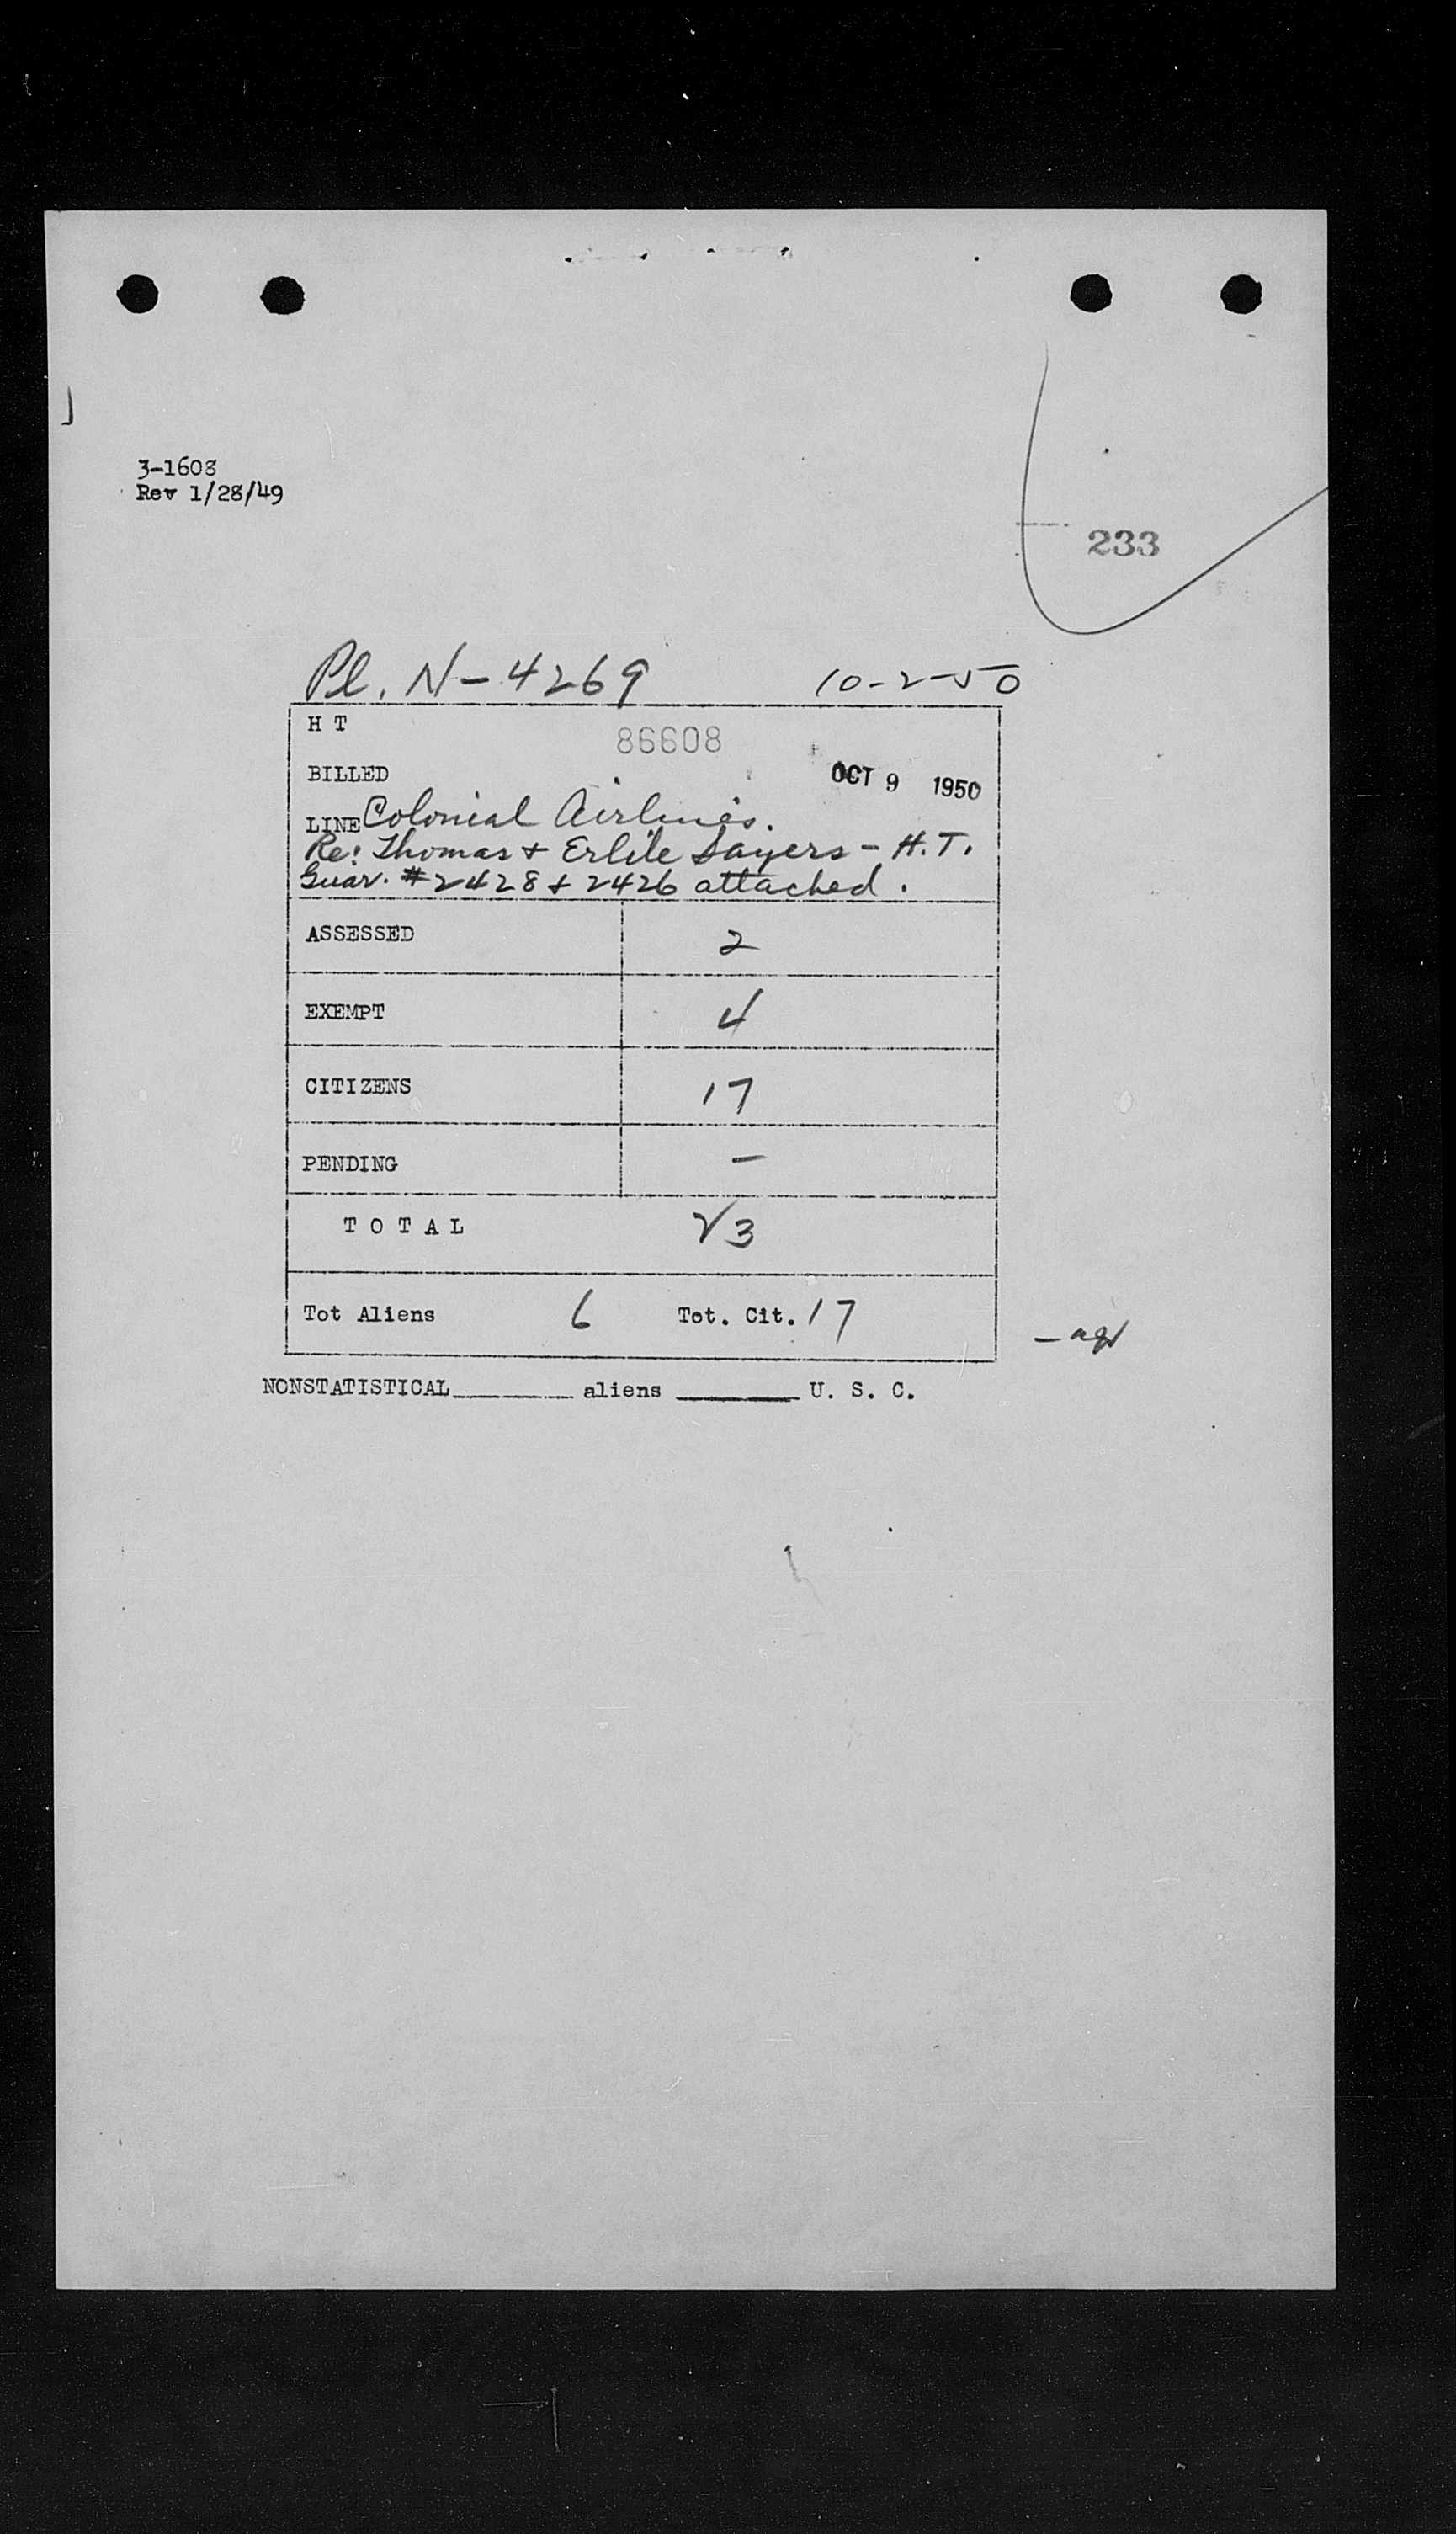 3-1608
Rev 1/28/49
233
Pl. N-4269 10-2-50
H T 86608
BILLED OCT 9 1950
LINE Colonial Airlines.
Re: Thomas + Erlile Sayers - H.T.
Guar. #2428 + 2426 attached.
ASSESSED 2
EXEMPT 4
CITIZENS 17
PENDING -
TOTAL 23
Tot Aliens 6 Tot. Cit. 17
NONSTATISTICAL________ aliens ________ U. S. C.